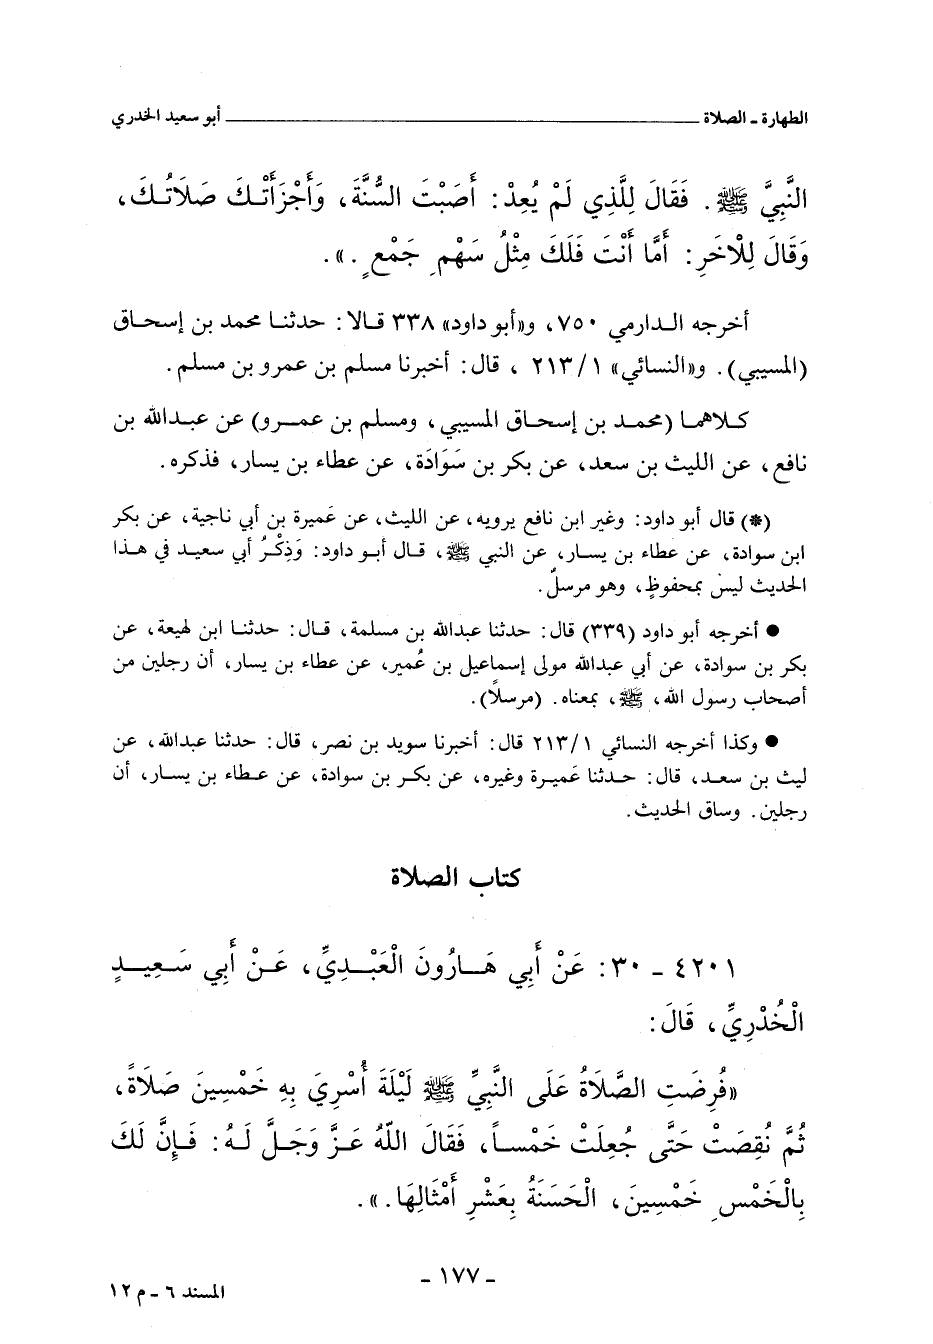 الطهارة - الصلاة ــــــــــــــــــــــــــــــــ أبو سعيد الخدري
النَّبِيَّ ﷺ . فَقَالَ لِلَّذِي لَمْ يُعِدْ: أَصَبْتَ السُّنَّةَ، وَأَجْزَأَتْكَ صَلَاتُكَ،
وَقَالَ لِلْآخَرِ: أَمَّا أَنْتَ فَلَكَ مِثْلُ سَهْمِ جَمْعٍ .».
أخرجه الدارمي ٧٥٠، و«أبو داود» ٣٣٨ قالا: حدثنا محمد بن إسحاق
(المسيبي). و«النسائي» ٢١٣/١ ، قال: أخبرنا مسلم بن عمرو بن مسلم.
كلاهما (محمد بن إسحاق المسيبي، ومسلم بن عمرو) عن عبدالله بن
نافع، عن الليث بن سعد، عن بكر بن سَوَادَة، عن عطاء بن يسار، فذكره.
(*) قال أبو داود: وغير ابن نافع يرويه، عن الليث، عن عَميرة بن أبي ناجية، عن بكر
ابن سوادة، عن عطاء بن يسار، عن النبي ﷺ، قال أبو داود: وَذِكْرُ أبي سعيد في هذا
الحديث ليس بمحفوظٍ، وهو مرسلٌ.
● أخرجه أبو داود (٣٣٩) قال: حدثنا عبدالله بن مسلمة، قال: حدثنا ابن لهيعة، عن
بكر بن سوادة، عن أبي عبدالله مولى إسماعيل بن عُمير، عن عطاء بن يسار، أن رجلين من
أصحاب رسول الله، ﷺ، بمعناه. (مرسلًا).
● وكذا أخرجه النسائي ٢١٣/١ قال: أخبرنا سويد بن نصر، قال: حدثنا عبدالله، عن
ليث بن سعد، قال: حدثنا عَميرة وغيره، عن بكر بن سوادة، عن عطاء بن يسار، أن
رجلين. وساق الحديث.
كتاب الصلاة
٤٢٠١ - ٣٠: عَنْ أَبِي هَارُونَ الْعَبْدِيِّ، عَنْ أَبِي سَعِيدٍ
الْخُدْرِيِّ، قَالَ:
«فُرِضَتِ الصَّلَاةُ عَلَى النَّبِيِّ ﷺ لَيْلَةَ أُسْرِيَ بِهِ خَمْسِينَ صَلَاةً،
ثُمَّ نُقِصَتْ حَتَّى جُعِلَتْ خَمْساً، فَقَالَ اللهُ عَزَّ وَجَلَّ لَهُ: فَإِنَّ لَكَ
بِالْخَمْسِ خَمْسِينَ، الْحَسَنَةُ بِعَشْرِ أَمْثَالِهَا.».
- ١٧٧ -
المسند ٦ - م ١٢